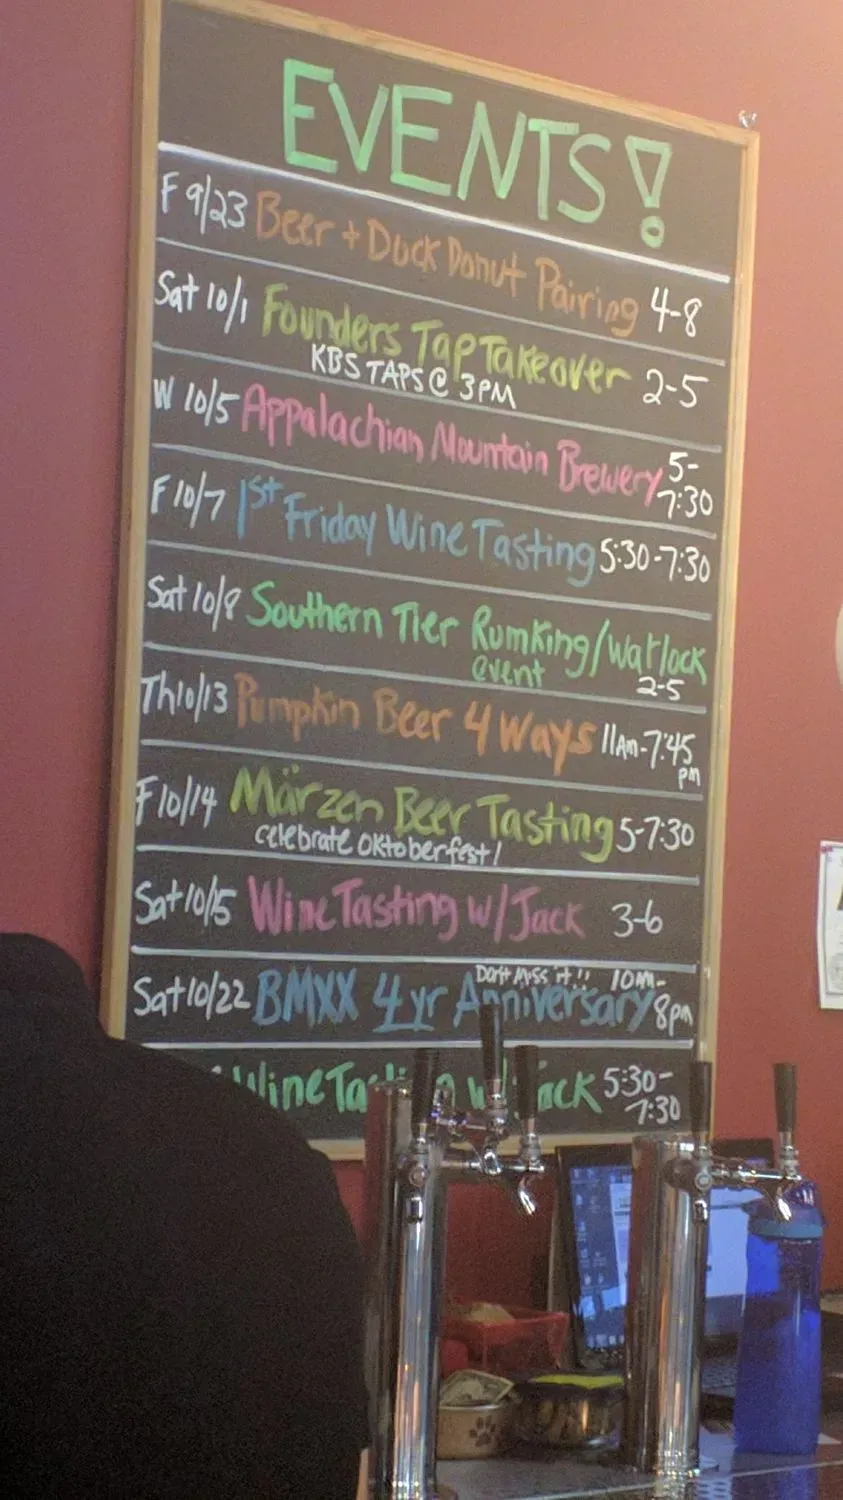 EVENTS!
F 9/23 Beer + Duck Donut Pairing 4-8
Sat 10/1 Founders Tap Takeover 2-5
KBS TAPS @ 3PM
W 10/5 Appalachian Mountain Brewery 5-
7:30
F 10/7 1st Friday Wine Tasting 5:30-7:30
Sat 10/8 Southern Tier Rumking/Warlock
event 2-5
Th 10/13 Pumpkin Beer 4 Ways 11Am-7:45
pm
F 10/14 Märzen Beer Tasting 5-7:30
celebrate Oktoberfest!
Sat 10/15 Wine Tasting w/ Jack 3-6
Don't Miss it!!
Sat 10/22 BMXX 4 yr Anniversary 10AM-
8pm
Wine 5:30-
7:30